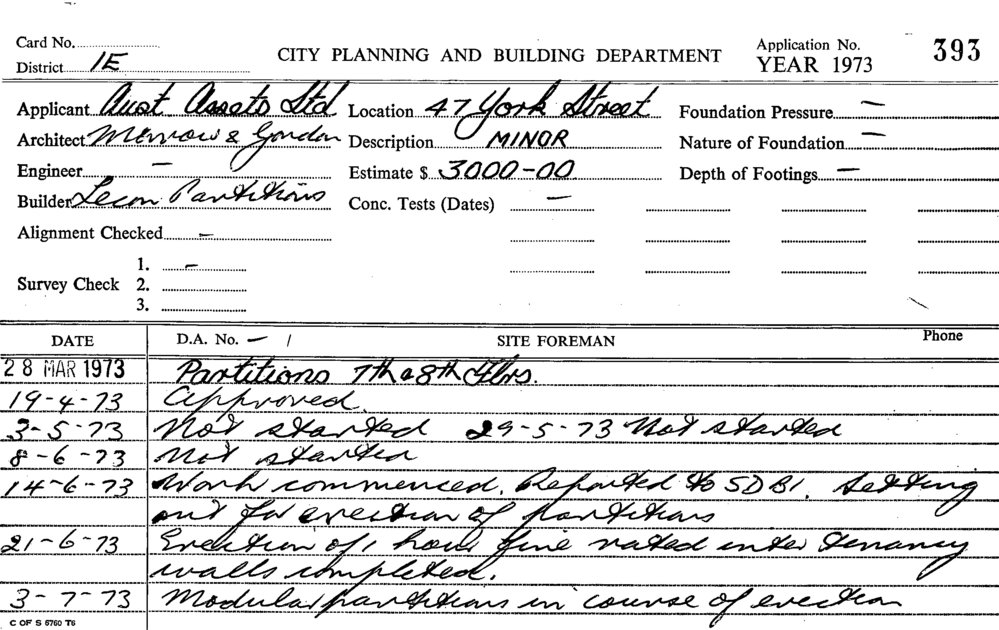 Card No.
CITY PLANNING AND BUILDING DEPARTMENT
Application No. 393
District 1E
YEAR 1973
Applicant Aust Assets Ltd Location 47 York Street Foundation Pressure —
Architect Morrow & Gordon Description MINOR Nature of Foundation —
Engineer — Estimate $ 3000-00 Depth of Footings —
Builder Lecon Partitions Conc. Tests (Dates) —
Alignment Checked —
1. —
Survey Check 2.
3.
DATE D.A. No. — / SITE FOREMAN Phone
28 MAR 1973 Partitions 7th & 8th Flrs.
19-4-73 Approved.
3-5-73 Not started 29-5-73 Not started
8-6-73 Not started
14-6-73 Work commenced. Reported to SDBI. Setting
out for erection of partitions
21-6-73 Erection of 1 hour fire rated inter tenancy
walls completed.
3-7-73 Modular partitions in course of erection
C OF S 5760 T6